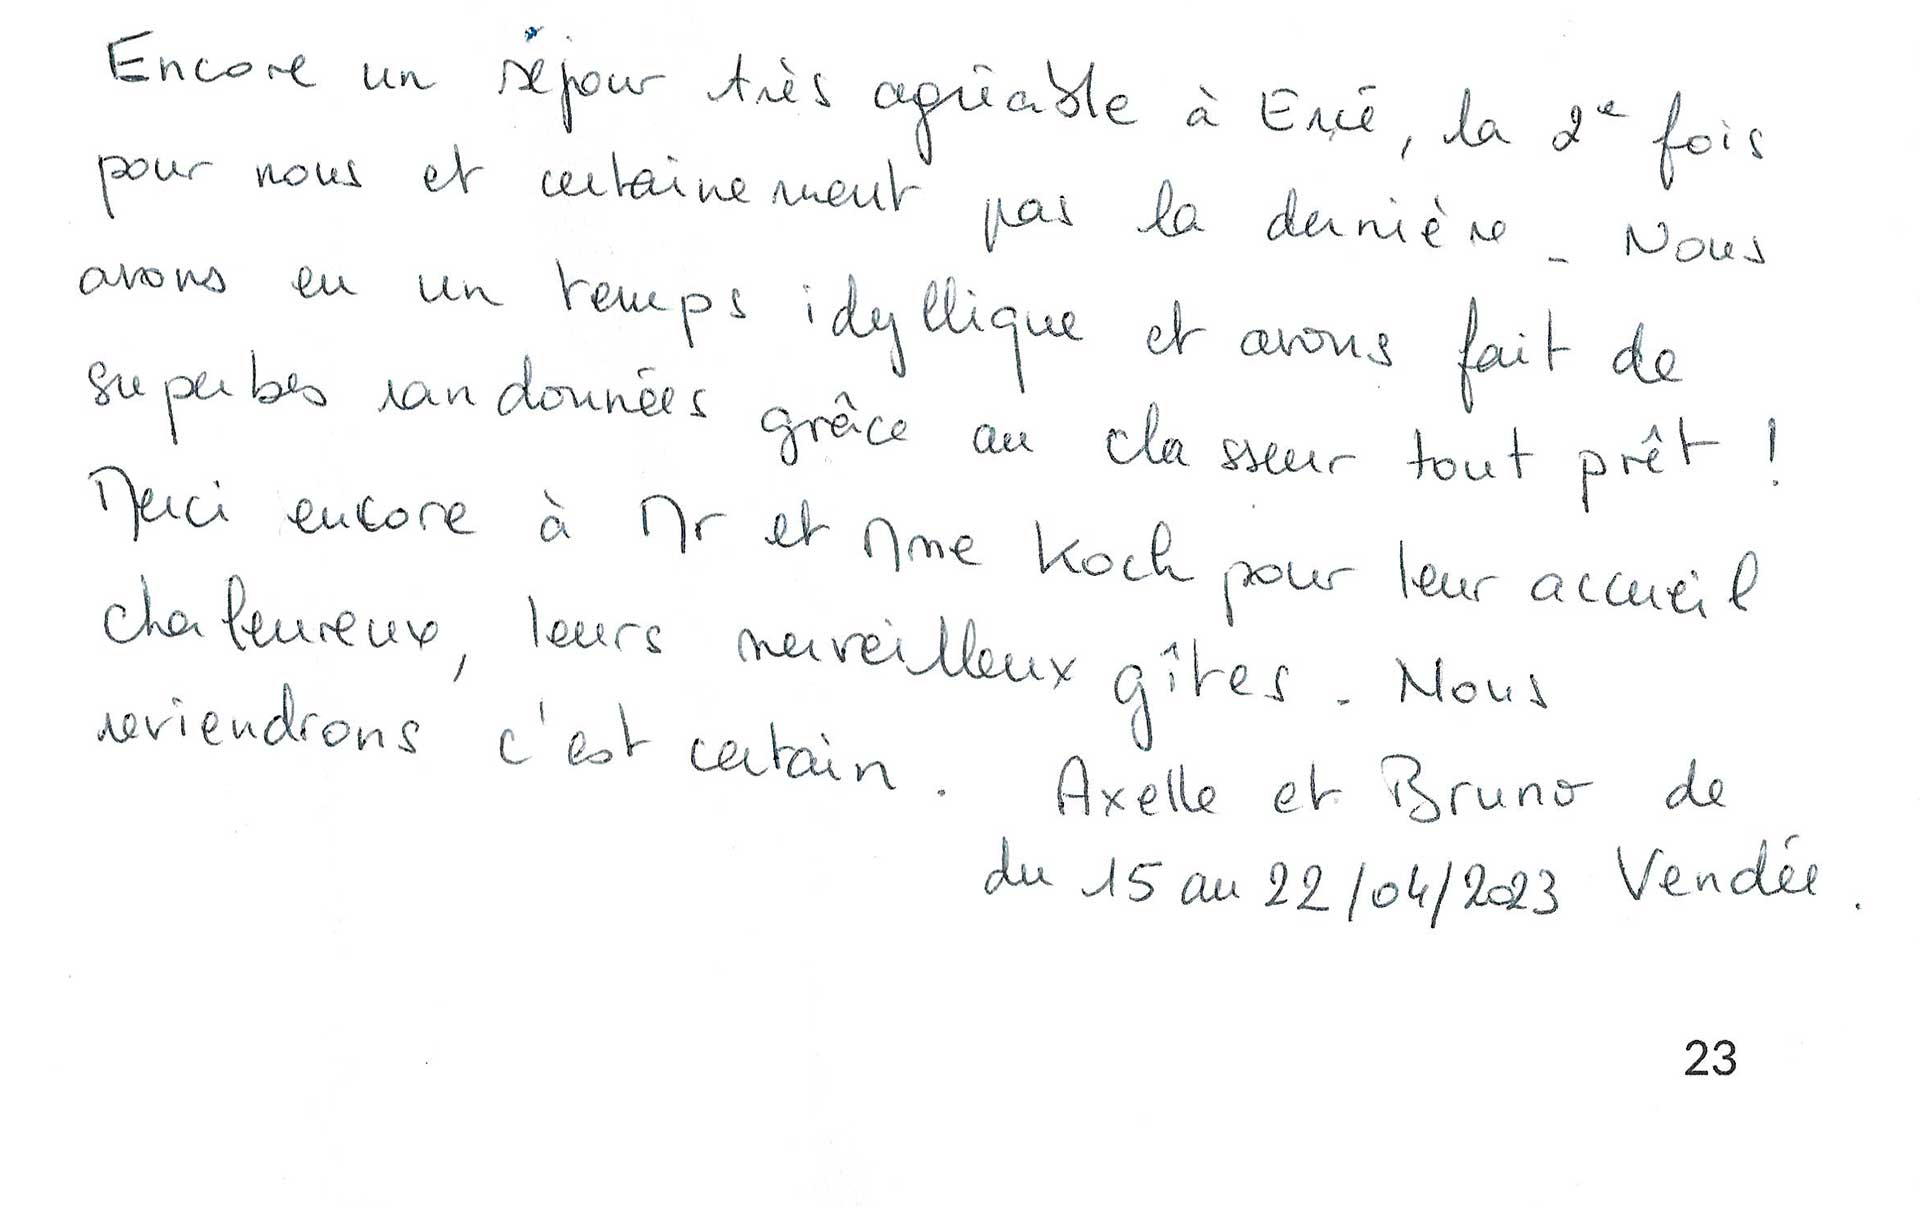 Encore un séjour très agréable à Ercé, la 2e fois
pour nous et certainement pas la dernière. Nous
avons eu un temps idyllique et avons fait de
superbes randonnées grâce au classeur tout prêt !
Merci encore à Mr et Mme Koch pour leur accueil
chaleureux, leurs merveilleux gîtes. Nous
reviendrons c'est certain. Axelle et Bruno de
du 15 au 22/04/2023 Vendée.
23